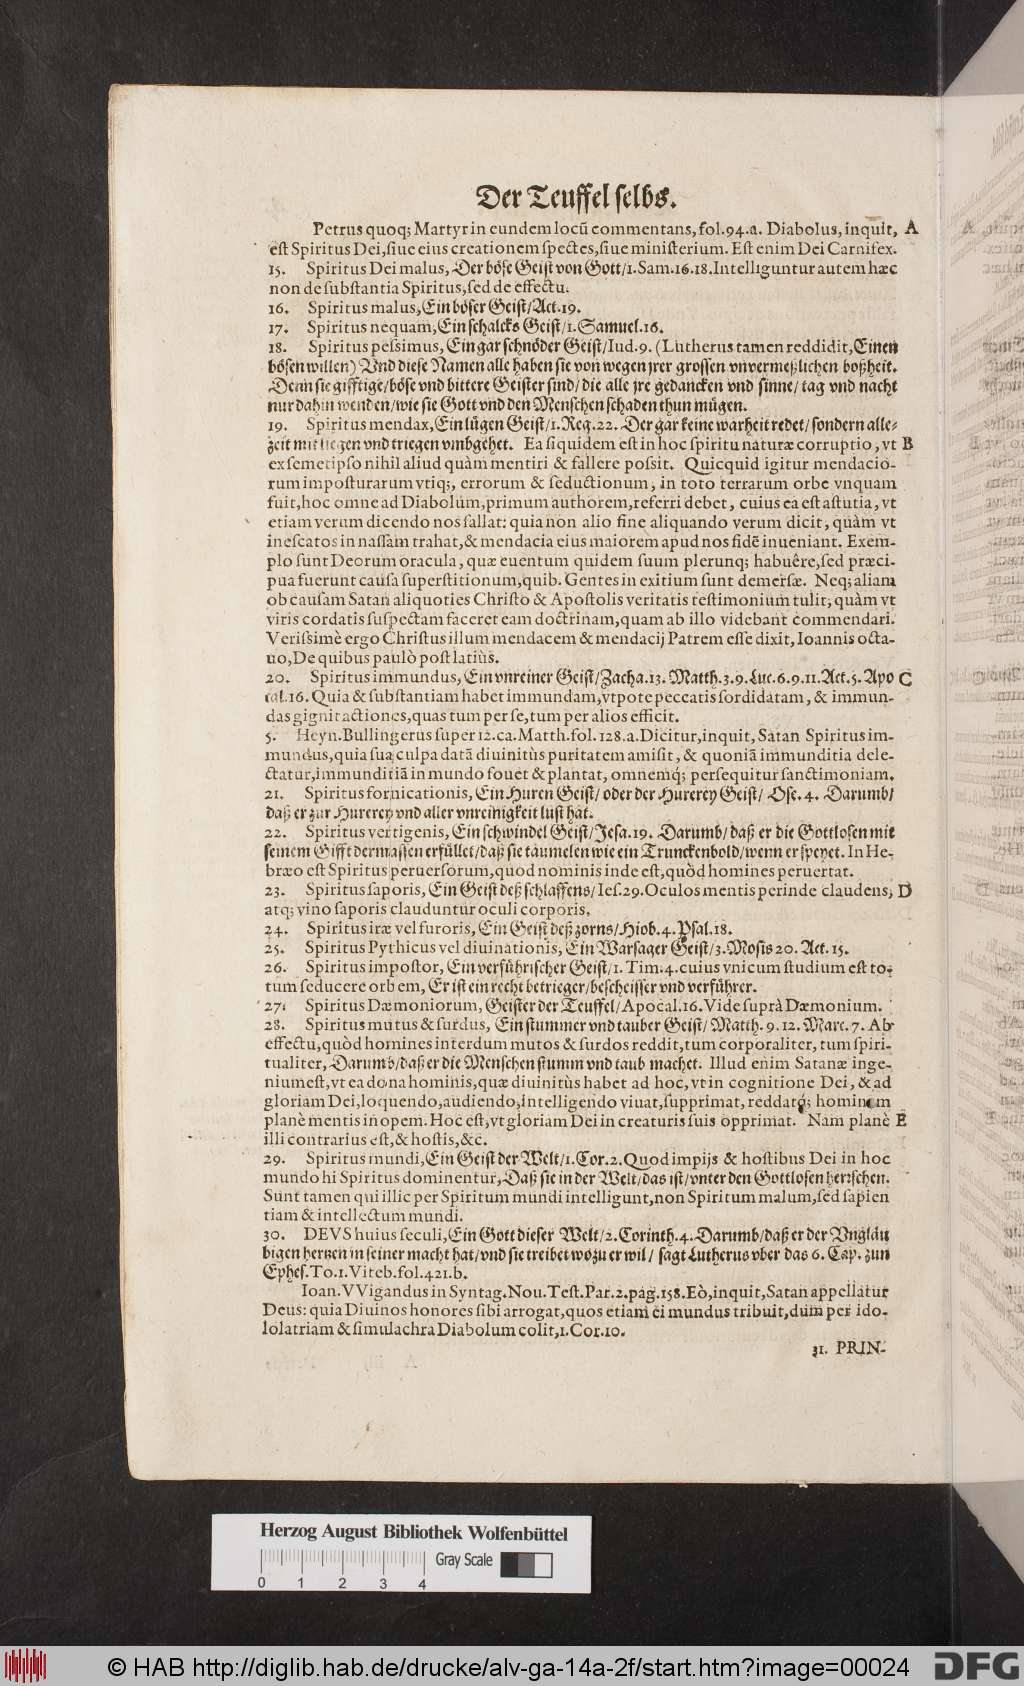 Der Teuffel selbs.
Petrus quoq; Martyr in eundem locū commentans, fol.94.a. Diabolus, inquit, A
est Spiritus Dei, siue eius creationem spectes, siue ministerium. Est enim Dei Carnifex.
15. Spiritus Dei malus, Der böse Geist von Gott/1.Sam.16.18. Intelliguntur autem hæc
non de substantia Spiritus, sed de effectu.
16. Spiritus malus, Ein böser Geist/Act.19.
17. Spiritus nequam, Ein schalcks Geist/1.Samuel.16.
18. Spiritus pessimus, Ein gar schnöder Geist/Iud.9. (Lutherus tamen reddidit, Einen
bösen willen) Vnd diese Namen alle haben sie von wegen jrer grossen vnvermeßlichen boßheit.
Denn sie gifftige/böse vnd bittere Geister sind/die alle jre gedancken vnd sinne/tag vnd nacht
nur dahin wenden/wie sie Gott vnd den Menschen schaden thun mügen.
19. Spiritus mendax, Ein lügen Geist/1.Reg.22. Der gar keine warheit redet/sondern alle-
zeit mit liegen vnd triegen vmbgehet. Ea siquidem est in hoc spiritu naturæ corruptio, vt B
ex semetipso nihil aliud quàm mentiri & fallere possit. Quicquid igitur mendacio-
rum imposturarum vtiq;, errorum & seductionum, in toto terrarum orbe vnquam
fuit, hoc omne ad Diabolum, primum authorem, referri debet, cuius ea est astutia, vt
etiam verum dicendo nos fallat: quia non alio fine aliquando verum dicit, quàm vt
inescatos in nassam trahat, & mendacia eius maiorem apud nos fidē inueniant. Exem-
plo sunt Deorum oracula, quæ euentum quidem suum plerunq; habuêre, sed præci-
pua fuerunt causa superstitionum, quib. Gentes in exitium sunt demersæ. Neq; aliam
ob causam Satan aliquoties Christo & Apostolis veritatis testimonium tulit, quàm vt
viris cordatis suspectam faceret eam doctrinam, quam ab illo videbant commendari.
Verissimè ergo Christus illum mendacem & mendacij Patrem esse dixit, Ioannis octa-
uo, De quibus paulò post latiùs.
20. Spiritus immundus, Ein vnreiner Geist/Zacha.13. Matth.3.9. Luc.6.9.11. Act.5. Apo C
cal.16. Quia & substantiam habet immundam, vtpote peccatis sordidatam, & immun-
das gignit actiones, quas tum per se, tum per alios efficit.
5. Heyn. Bullingerus super 12.ca.Matth.fol.128.a. Dicitur, inquit, Satan Spiritus im-
mundus, quia sua culpa datā diuinitùs puritatem amisit, & quoniā immunditia dele-
ctatur, immunditiā in mundo fouet & plantat, omnemq́; persequitur sanctimoniam.
21. Spiritus fornicationis, Ein Huren Geist/oder der Hurerey Geist/Ose.4. Darumb/
daß er zur Hurerey vnd aller vnreinigkeit lust hat.
22. Spiritus vertigenis, Ein schwindel Geist/Jesa.19. Darumb/daß er die Gottlosen mit
seinem Gifft dermassen erfüllet/daß sie taumelen wie ein Trunckenbold/wenn er speyet. In He-
bræo est Spiritus peruersorum, quod nominis inde est, quòd homines peruertat.
23. Spiritus saporis, Ein Geist deß schlaffens/Ies.29. Oculos mentis perinde claudens, D
atq; vino saporis clauduntur oculi corporis.
24. Spiritus iræ vel furoris, Ein Geist deß zorns/Hiob.4. Psal.18.
25. Spiritus Pythicus vel diuinationis, Ein Warsager Geist/3.Mosis 20. Act.15.
26. Spiritus impostor, Ein verführischer Geist/1.Tim.4. cuius vnicum studium est to-
tum seducere orbem, Er ist ein recht betrieger/bescheisser vnd verführer.
27. Spiritus Dæmoniorum, Geister der Teuffel/Apocal.16. Vide suprà Dæmonium.
28. Spiritus mutus & surdus, Ein stummer vnd tauber Geist/Matth.9.12. Marc.7. Ab
effectu, quòd homines interdum mutos & surdos reddit, tum corporaliter, tum spiri-
tualiter, Darumb/daß er die Menschen stumm vnd taub machet. Illud enim Satanæ inge-
nium est, vt ea dona hominis, quæ diuinitùs habet ad hoc, vt in cognitione Dei, & ad
gloriam Dei, loquendo, audiendo, intelligendo viuat, supprimat, reddatq́; hominem
planè mentis inopem. Hoc est, vt gloriam Dei in creaturis suis opprimat. Nam planè E
illi contrarius est, & hostis, &c.
29. Spiritus mundi, Ein Geist der Welt/1.Cor.2. Quod impijs & hostibus Dei in hoc
mundo hi Spiritus dominentur, Daß sie in der Welt/das ist/vnter den Gottlosen herrschen.
Sunt tamen qui illic per Spiritum mundi intelligunt, non Spiritum malum, sed sapien
tiam & intellectum mundi.
30. DEVS huius seculi, Ein Gott dieser Welt/2.Corinth.4. Darumb/daß er der Vngläu
bigen hertzen in seiner macht hat/vnd sie treibet wozu er wil/sagt Lutherus vber das 6. Cap. zun
Ephes.To.1.Viteb.fol.421.b.
Ioan. VVigandus in Syntag.Nou.Test.Par.2.pag.158. Eò, inquit, Satan appellatur
Deus: quia Diuinos honores sibi arrogat, quos etiam ei mundus tribuit, dum per ido-
lolatriam & simulachra Diabolum colit, 1.Cor.10.
31. PRIN-
Herzog August Bibliothek Wolfenbüttel
Gray Scale
0 1 2 3 4
© HAB http://diglib.hab.de/drucke/alv-ga-14a-2f/start.htm?image=00024
DFG